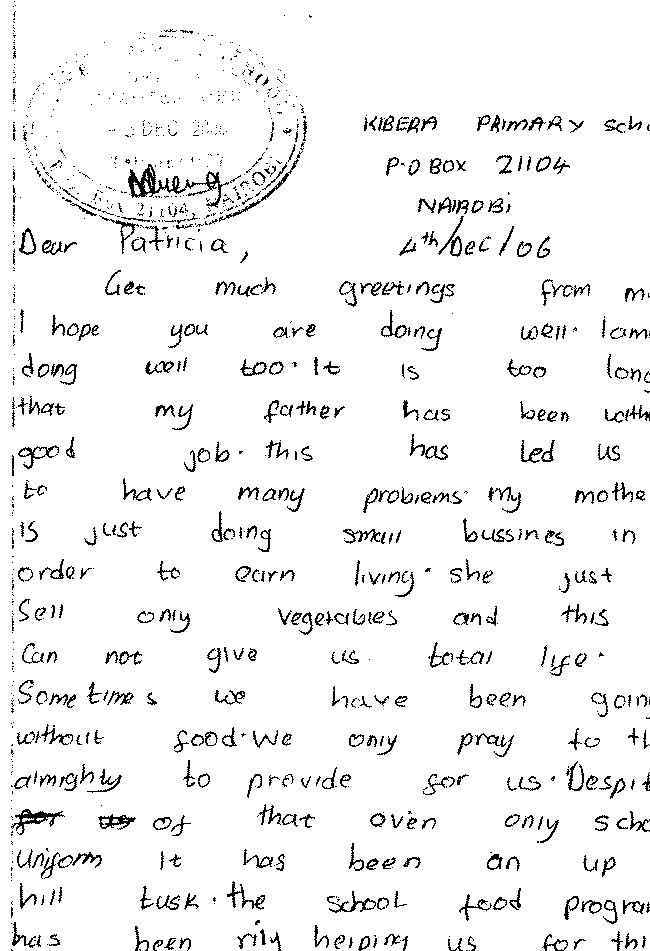 KIBERA PRIMARY
P.O BOX 21104
NAIROBI
DEC 20
P.O. BOX 21104, NAIROBI
4th/DEC/06
Dear Patricia,
Get much greetings from
I hope you are doing well. Iam
doing well too. It is too long
that my father has been
good job. this has led us
to have many problems. My mothe
is just doing small bussines in
order to earn living. she just
Sell only vegetables and this
Can not give us total life.
Sometimes we have been going
without food. We only pray to th
almighty to provide for us. Despit
for us of that even only scho
Uniform It has been an up
hill tusk. the school food program
has been rily helping us for thi